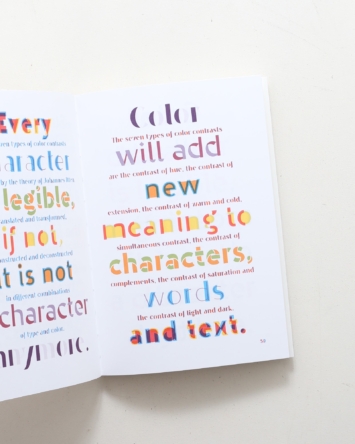 Every
types of color contrasts
by the theory of Johannes
legible,
and transformed,
if not,
and deconstructed
it is not
In different combinations
character
of type and color.
Color
The seven types of color contrasts
will add
are the contrast of hue, the contrast of
new
extension, the contrast of warm and cold,
meaning to
simultaneous contrast, the contrast of
characters,
complements, the contrast of saturation and
words
the contrast of light and dark.
and text.